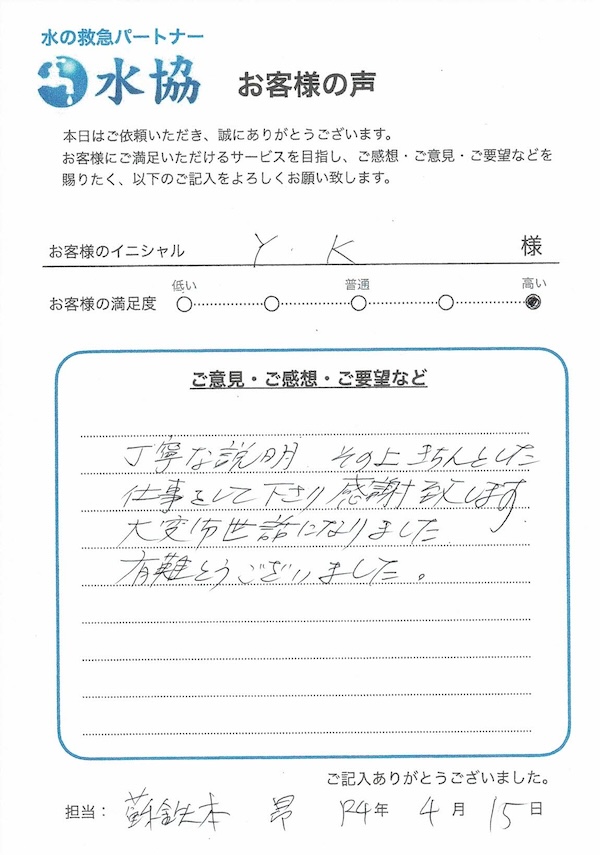 水の救急パートナー
水協 お客様の声
本日はご依頼いただき、誠にありがとうございます。
お客様にご満足いただけるサービスを目指し、ご感想・ご意見・ご要望などを
賜りたく、以下のご記入をよろしくお願い致します。
お客様のイニシャル Y・K 様
低い 普通 高い
お客様の満足度
ご意見・ご感想・ご要望など
丁寧な説明 その上きちんとした
仕事をして下さり感謝致します
大変お世話になりました
有難とうございました。
ご記入ありがとうございました。
担当: 蘇鉄本 昴 R4年 4月 15日